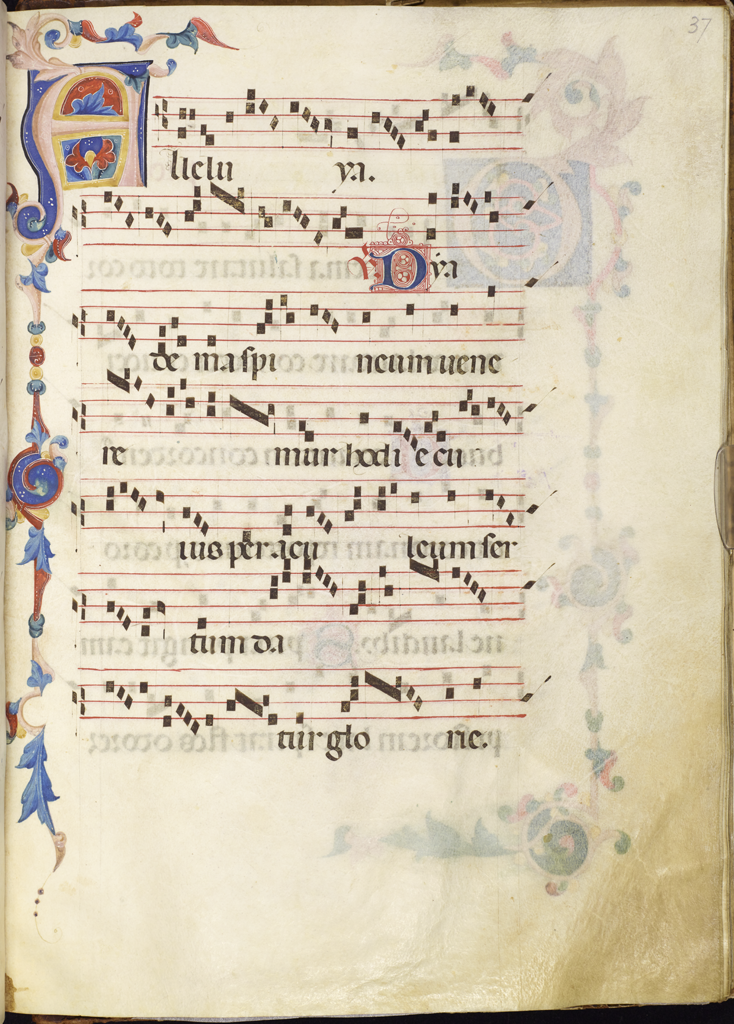 37
Allelu ya.
℣. Dya
de ma spi neum uene
re mur hodi e cu
ius per acu leum ser
tum da
tur glo rie.